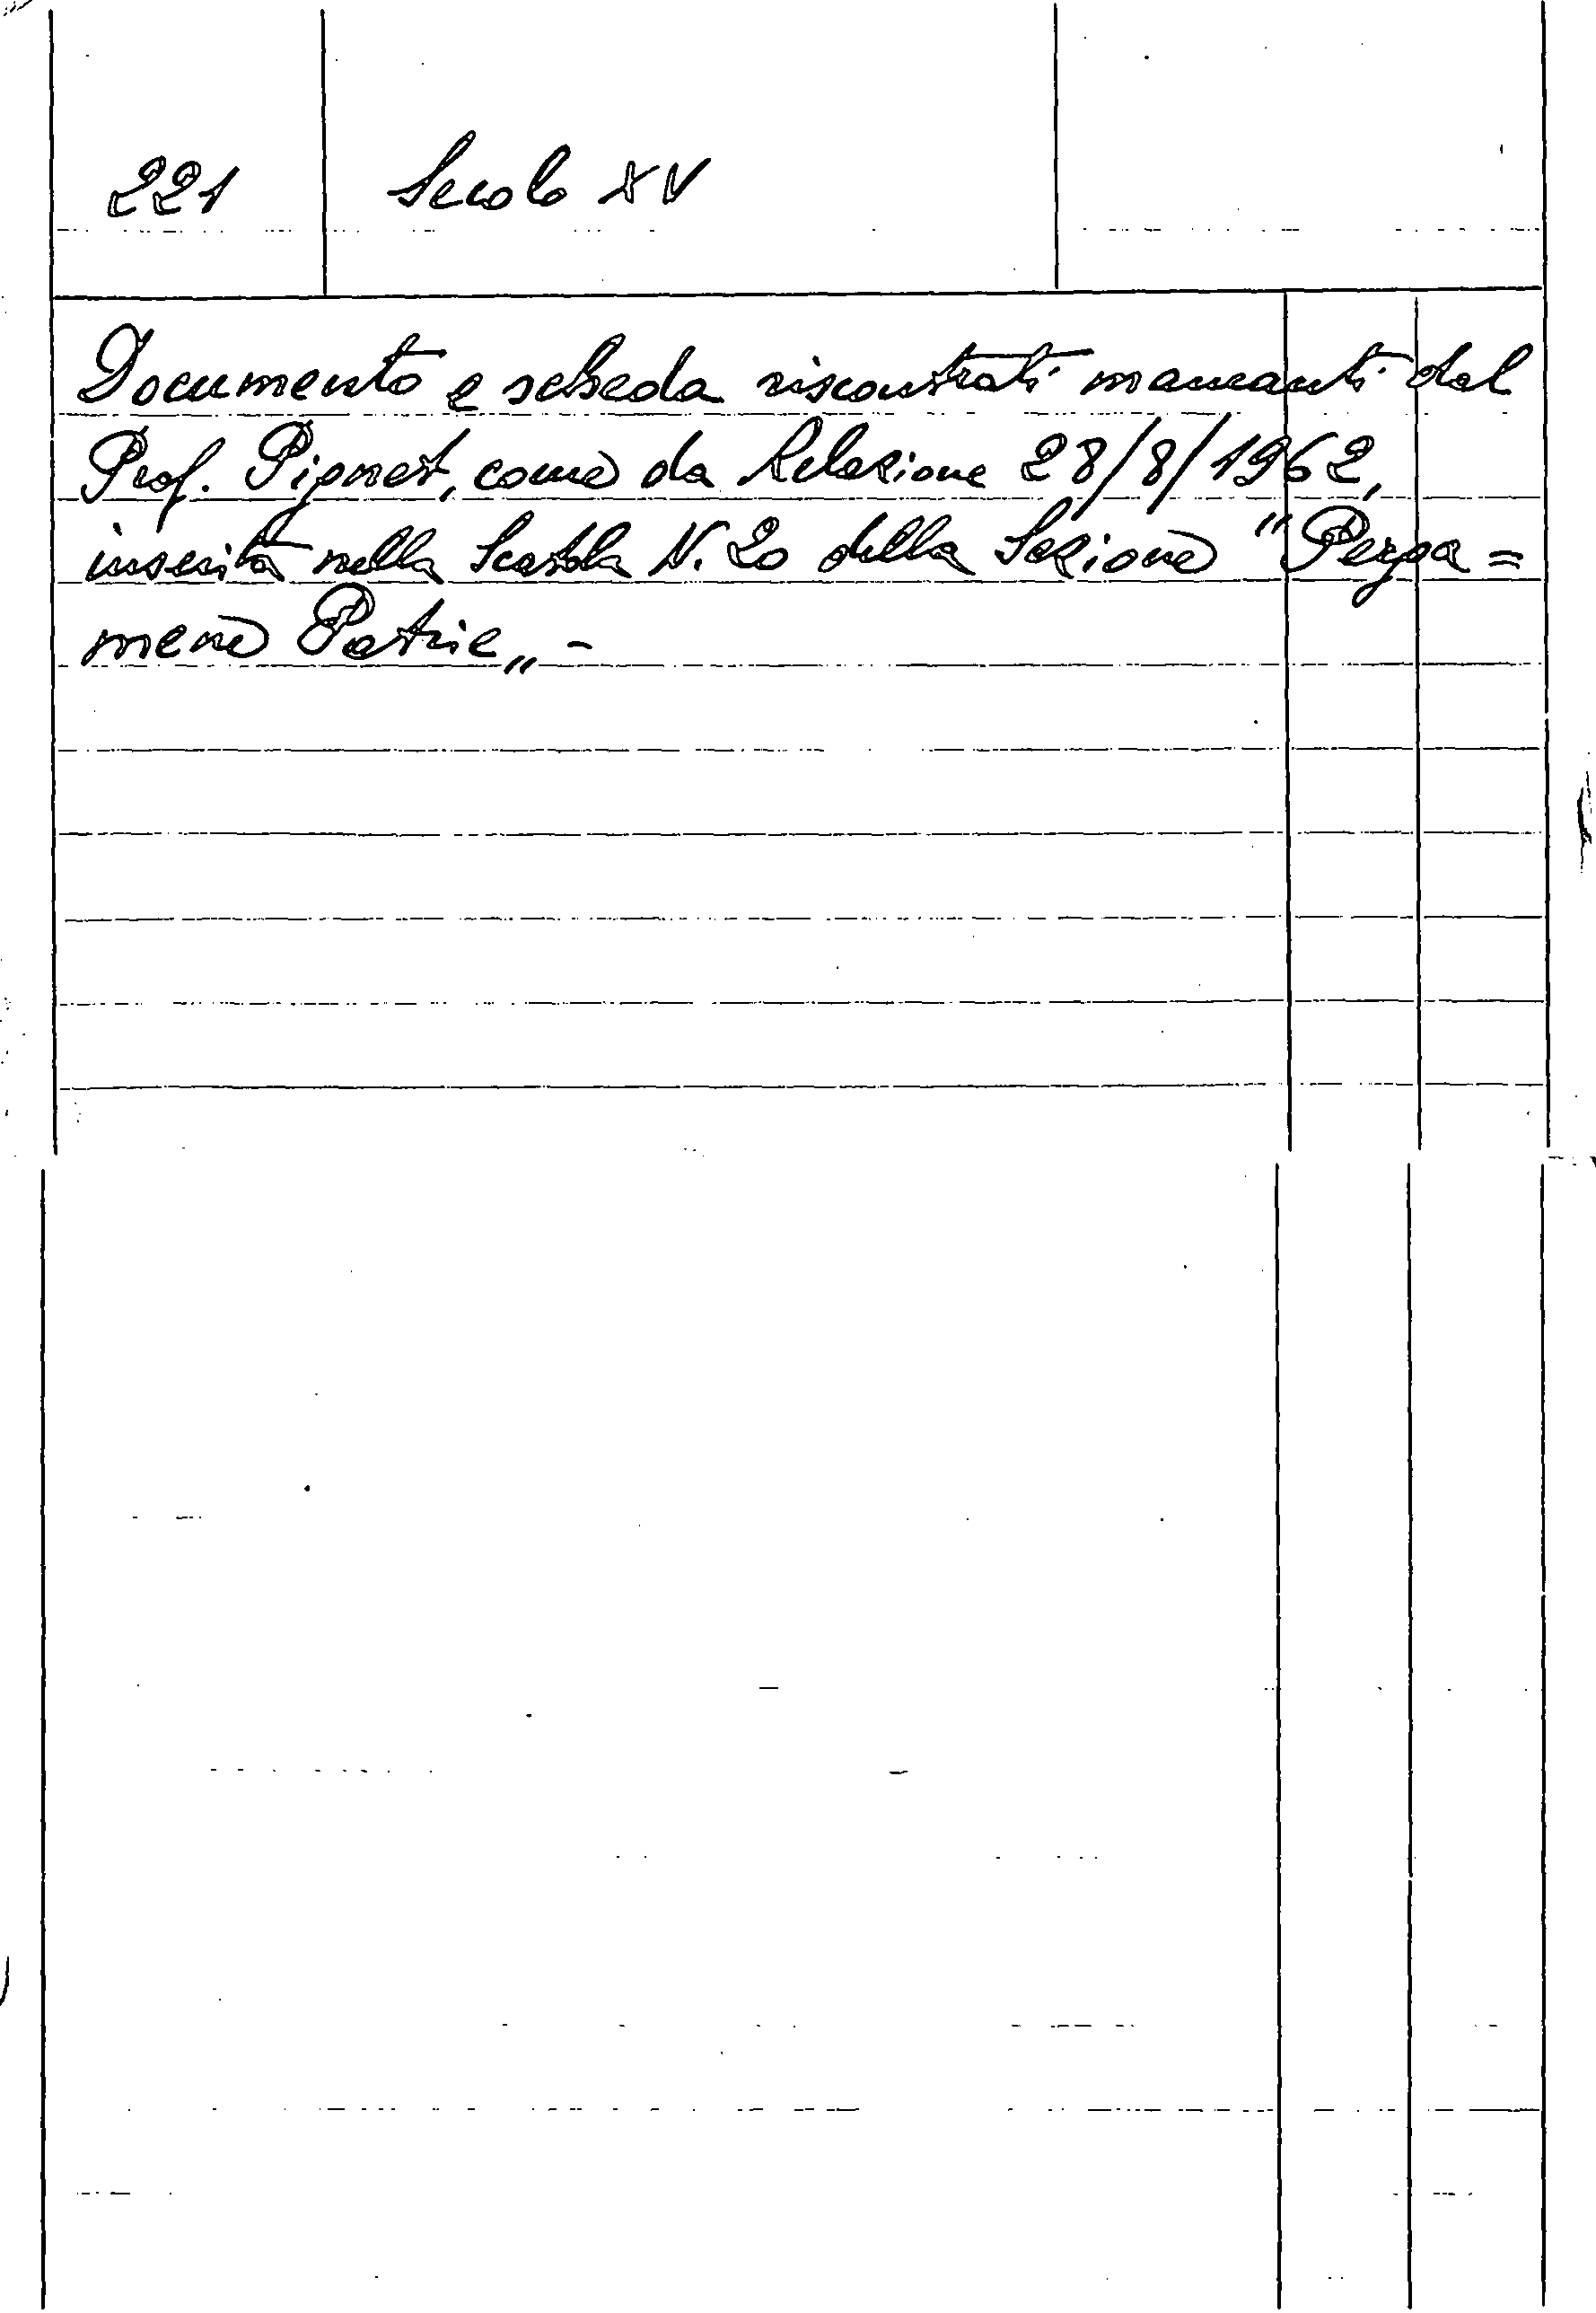 221 Secolo XV
Documento e scheda riscontrati mancanti dal
Prof. Pignet, come da Relazione 28/8/1962,
inserita nella Scatola N. 20 della Sezione "Perga=
mene Patrie„ -